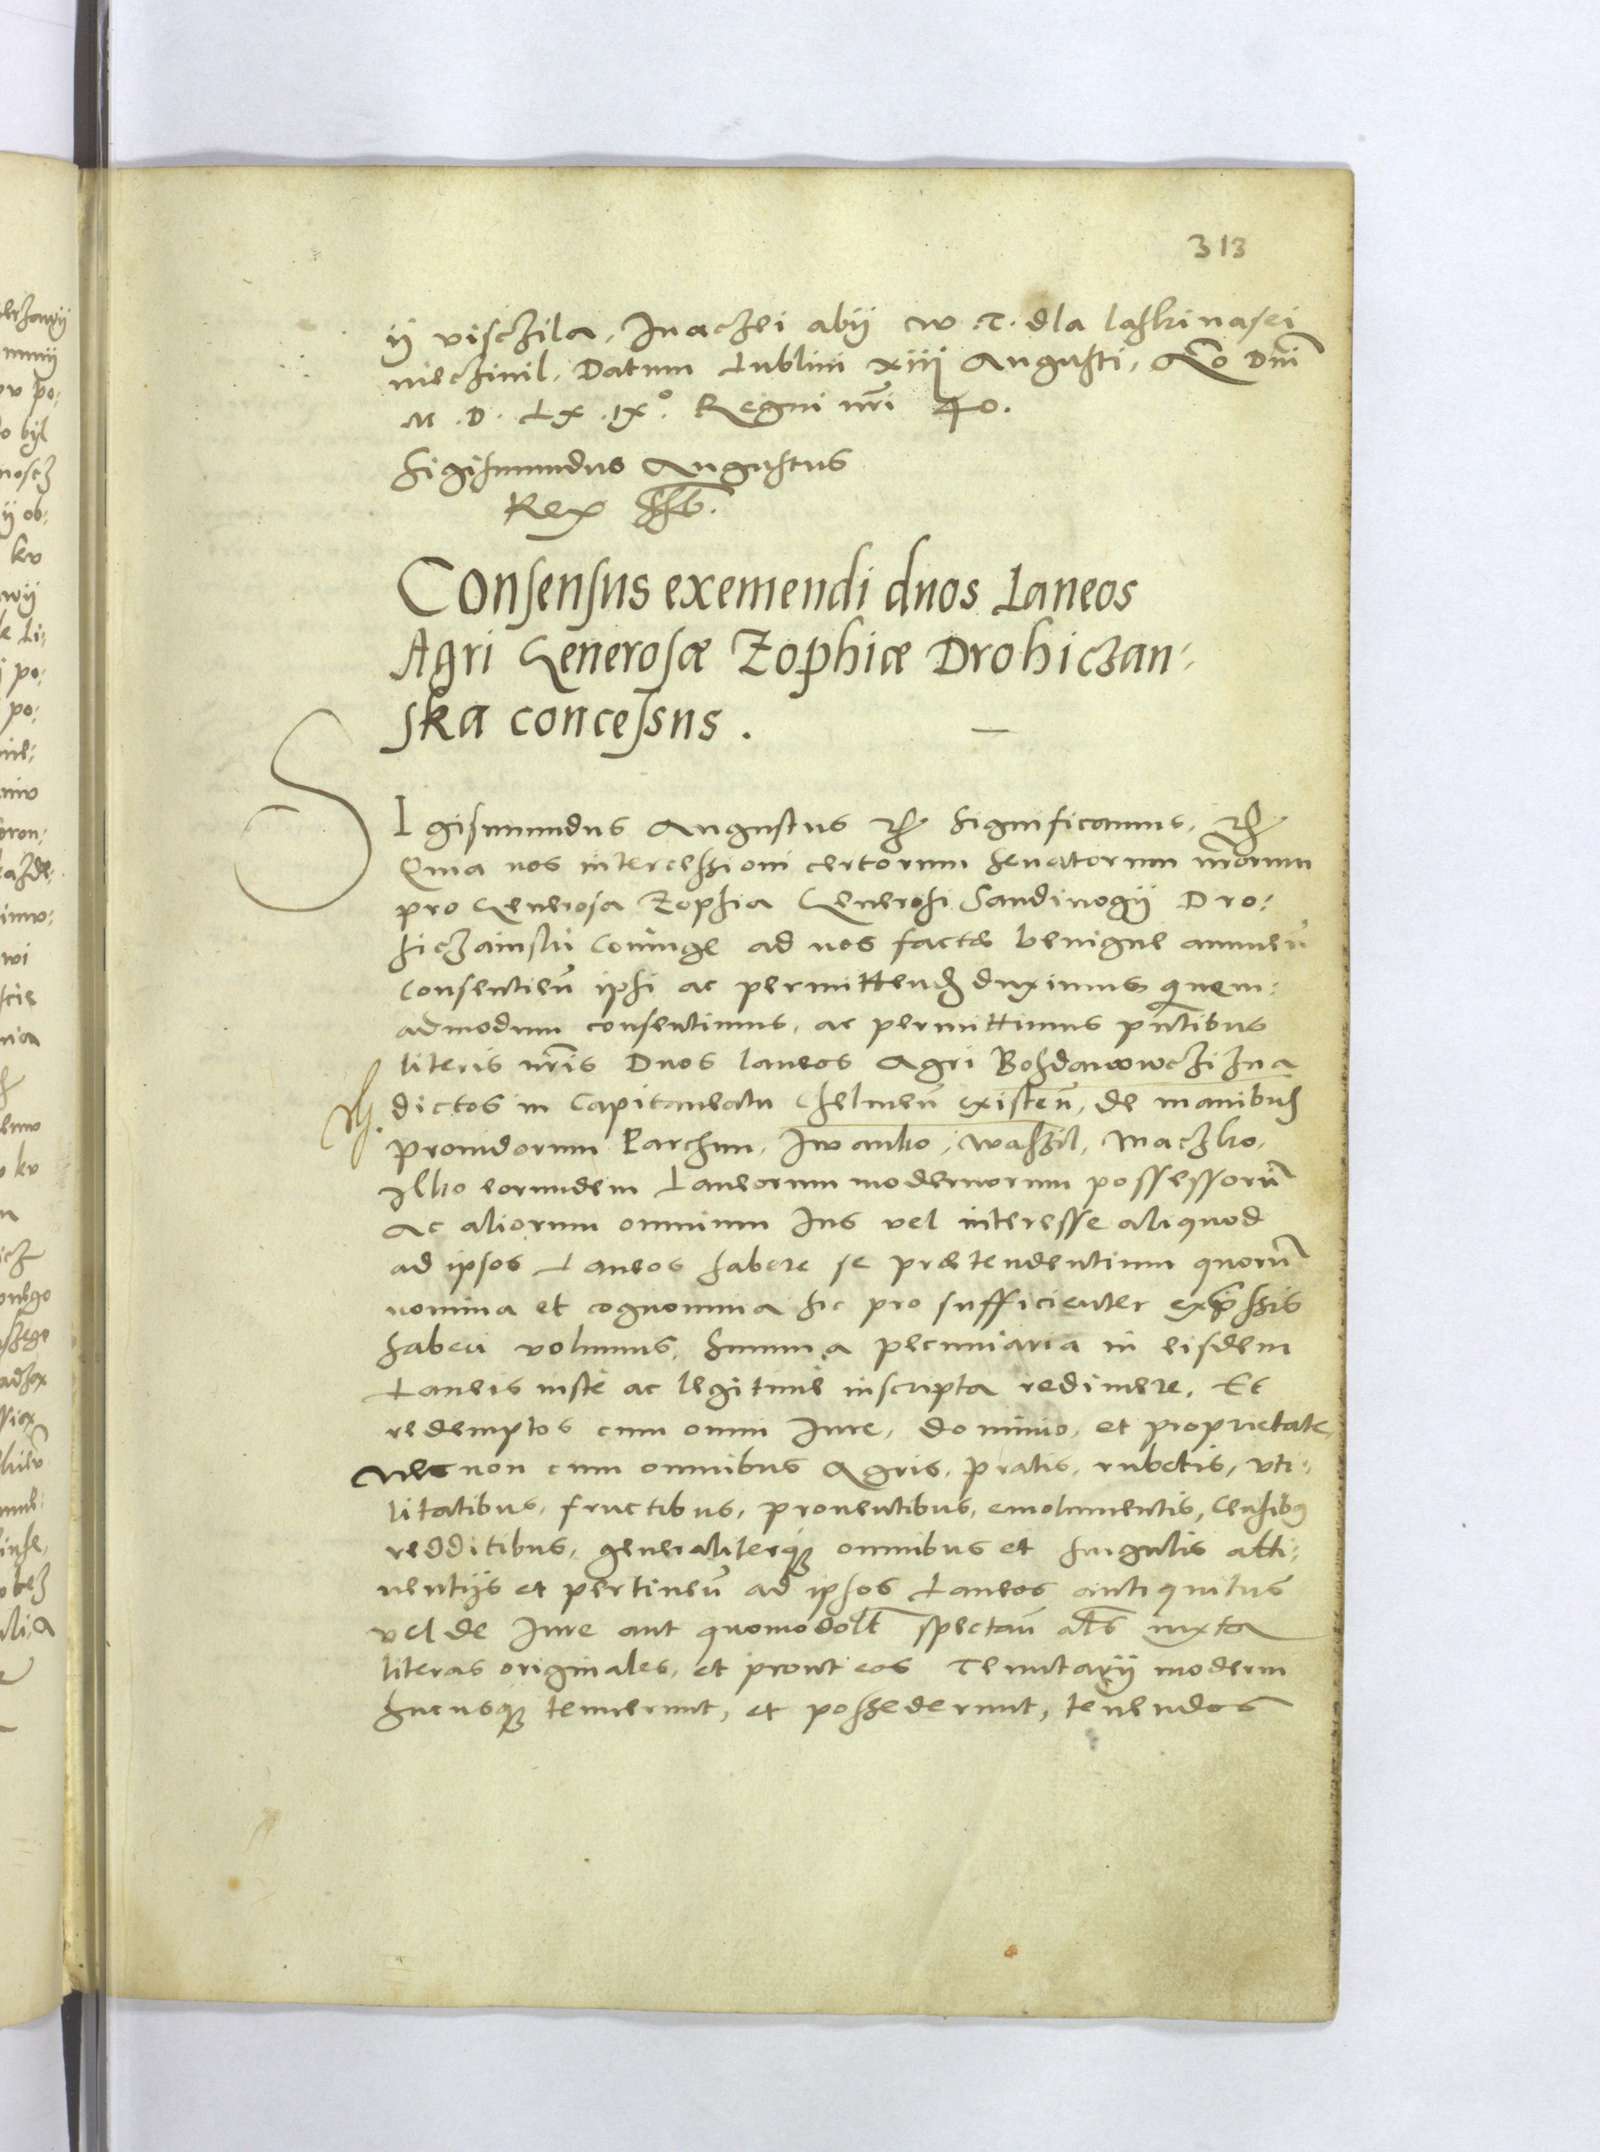 313
ij visczila, Inaczei abij W. T. dla laski nasei
nieczinil. Datum Lublini xiij Augusti, Ao Dni
M. D. LX. IXo. Regni nri 40.
Sigismundus Augustus
Rex sst.
Consensus exemendi duos Laneos
Agri Generosæ Zophiæ Drohiczan-
ska concessus.
SIgismundus Augustus etc Significamus, etc
Quia nos intercessioni certorum senatorum nrorum
pro Generosa Zophia Generosi Sandinogij Dro-
hiczainski Coniuge ad nos factæ benigne annuen
Consentien ipsi ac permittend duximus quem-
admodum consentimus, ac permittimus pntibus
literis nris Duos laneos Agri Bohdanowczizna
dictos in Capitaneatu Chelmen existen, de manibus
prouidorum Parchim, Iwanko, Wassil, Maczko,
Ilko eorundem Laneorum modernorum possessorum
Ac aliorum omnium Ius vel interesse aliquod
ad ipsos Laneos habere se prætendentium quorum
nomina et cognomina hic pro sufficienter expressis
haberi volumus, summa pecuniaria in eisdem
Laneis iuste ac legitime inscripta redimere. Et
redemptos cum omni Iure, dominio, et proprietate,
Nec non cum omnibus Agris, pratis, rubetis, vti-
litatibus, fructibus, prouentibus, emolumentis, Censibus
redditibus, generaliterque omnibus et singulis atti-
nentijs et pertinen ad ipsos Laneos antiquitus
vel de Iure aut quomodolt spectan als iuxta
literas originales, et prout eos Tenutarij moderni
hucusque tenuerunt, et possederunt, tenendos